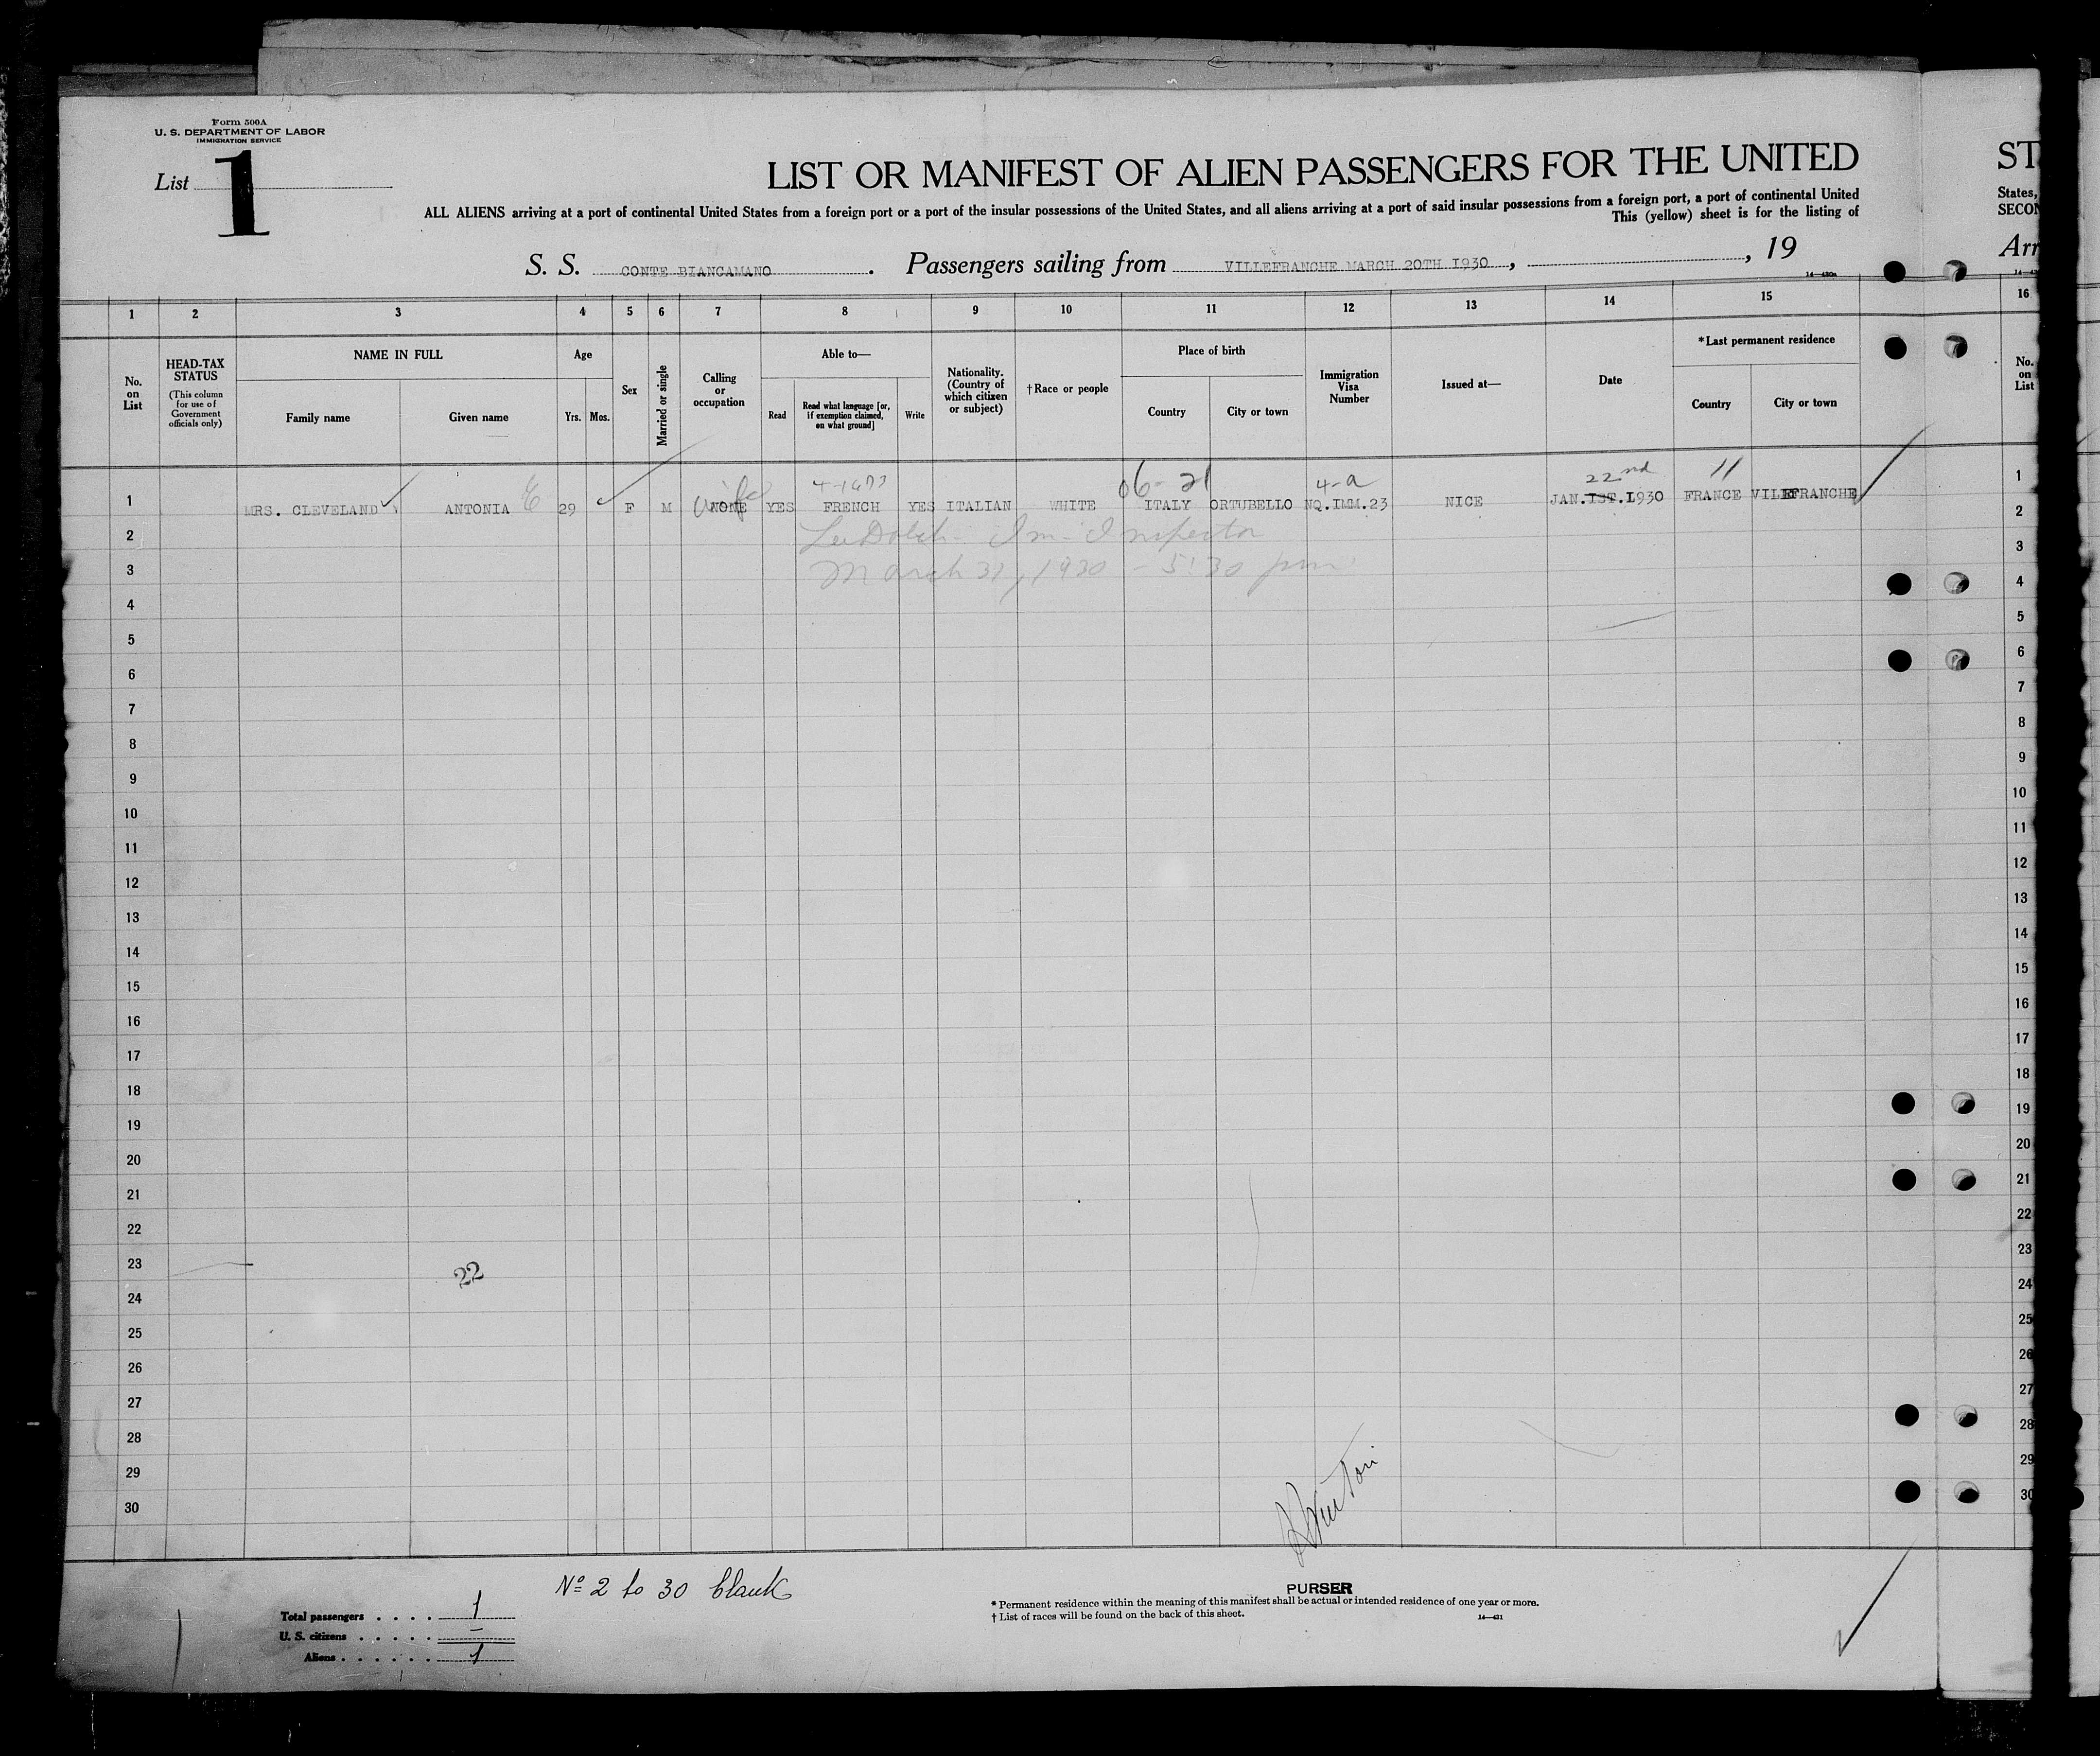 Form 500A
U. S. DEPARTMENT OF LABOR
IMMIGRATION SERVICE
List 1
LIST OR MANIFEST OF ALIEN PASSENGERS FOR THE UNITED
ST
ALL ALIENS arriving at a port of continental United States from a foreign port or a port of the insular possessions of the United States, and all aliens arriving at a port of said insular possessions from a foreign port, a port of continental United
States,
This (yellow) sheet is for the listing of
SECON
S. S. CONTE BIANCAMANO . Passengers sailing from VILLEFRANCHE MARCH 20TH 1930 , , 19
Arr
14—430a
1 2 3 4 5 6 7 8 9 10 11 12 13 14 15 16
No. on List
HEAD-TAX STATUS
(This column for use of Government officials only)
NAME IN FULL
Family name Given name
Age
Yrs. Mos.
Sex
Married or single
Calling or occupation
Able to—
Read Read what language [or, if exemption claimed, on what ground] Write
Nationality. (Country of which citizen or subject)
†Race or people
Place of birth
Country City or town
Immigration Visa Number
Issued at—
Date
*Last permanent residence
Country City or town
No. on List
06-21 4-a 22nd 11
1 MRS. CLEVELAND ANTONIA 29 F M NONE Wife YES FRENCH YES ITALIAN WHITE ITALY ORTUBELLO NQ.IMM.23 NICE JAN.IST.I930 FRANCE VILLEFRANCHE 1
2 Im. Inspector 2
3 March 31, 1930 - 5:30 pm 3
4 4
5 5
6 6
7 7
8 8
9 9
10 10
11 11
12 12
13 13
14 14
15 15
16 16
17 17
18 18
19 19
20 20
21 21
22 22
23 22 23
24 24
25 25
26 26
27 27
28 28
29 29
30 30
Nº 2 to 30 blank
PURSER
Total passengers . . . . 1
U. S. citizens . . . . . –
Aliens . . . . . . 1
* Permanent residence within the meaning of this manifest shall be actual or intended residence of one year or more.
† List of races will be found on the back of this sheet.
14—421